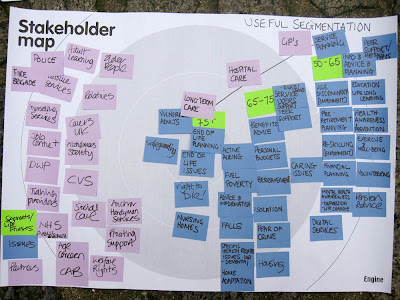 Stakeholder
map
USEFUL SEGMENTATION
POLICE
Adult
Learning
Older
People
FIRE
BRIGADE
Justice
Services
Relatives
Domestic
Services
Carers
UK
Job Centre
Alzheimers
Society
DWP
CVS
Training
Providers
Social
Care
Anchor
Handyman
Services
Floating
Support
NHS
Age
Concern
CAB
Welfare
Rights
Segments/
Life Phases
Issues
Partners
LONG-TERM
CARE
HOSPITAL
CARE
GP's
75+
VULNERABLE
ADULTS
END OF
LIFE
PLANNING
Safeguarding
END OF
LIFE
ISSUES
right to
Die!
NURSING
HOMES
65-75
BENEFITS
ADVICE
ACTIVE
AGEING
PERSONAL
BUDGETS
FUEL
POVERTY
BEREAVEMENT
ADVICE &
INFORMATION
ISOLATION
FALLS
FEAR OF
CRIME
SPECIFIC
HEALTH RELATED
ISSUES (eg
DEMENTIA)
HOUSING
HOME
ADAPTATION
50-65
SERVICE
PLANNING
INFO &
ADVICE &
PLANNING
PEER
SUPPORT/
AGE
DISCRIMINATION
EDUCATION
LIFE LONG
LEARNING
PRE
RETIREMENT
PLANNING
HEALTH
AWARENESS
PREVENTION
RE-SKILLING
EXERCISE
& WELL
BEING
CARING
ISSUES
FINANCIAL
PLANNING
VOLUNTEERING
MENTAL HEALTH
AWARENESS
DEPRESSION
Pension
Advice
DIGITAL
SERVICES
Engine